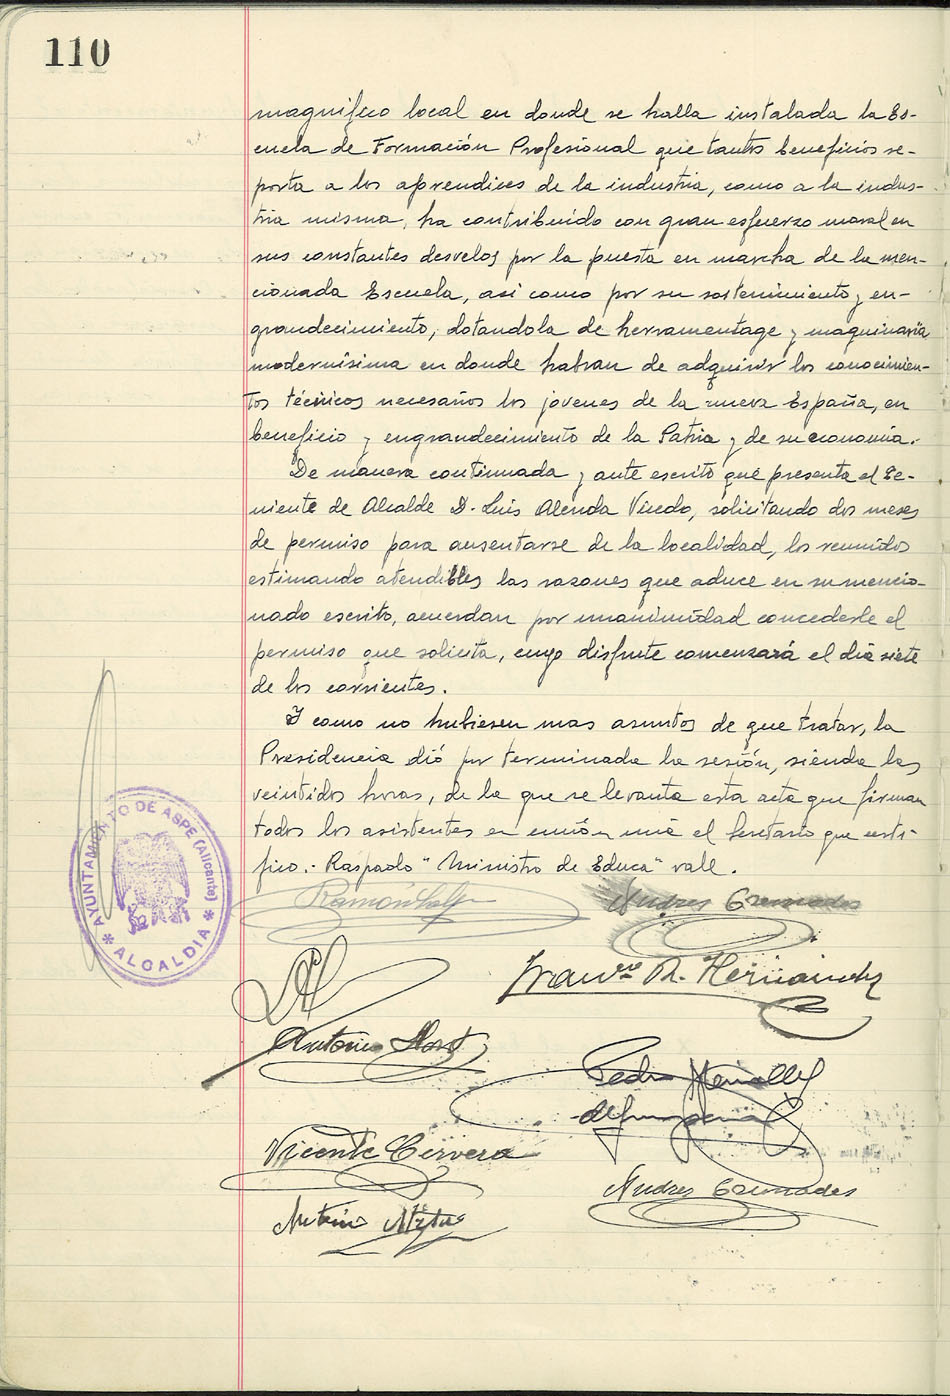 110
magnifico local en donde se halla instalada la Es-
cuela de Formación Profesional que tantos beneficios re-
porta a los aprendices de la industria, como a la indus-
tria misma, ha contribuido con gran esfuerzo moral en
sus constantes desvelos por la puesta en marcha de la men-
cionada Escuela, asi como por su sostenimiento y en-
grandecimiento, dotandola de herramentage y maquinaria
modernisima en donde habran de adquirir los conocimien-
tos técnicos necesarios los jovenes de la nueva España, en
beneficio y engrandecimiento de la Patria y de su economía.-
De manera continuada y ante escrito que presenta el Te-
niente de Alcalde D. Luis Alenda Viñedo, solicitando dos meses
de permiso para ausentarse de la localidad, los reunidos
estimando atendibles las razones que aduce en su mencio-
nado escrito, acuerdan por unanimidad concederle el
permiso que solicita, cuyo disfrute comenzará el dia siete
de los corrientes.
Y como no hubiesen mas asuntos de que tratar, la
Presidencia dió por terminada la sesión, siendo las
veintidos horas, de la que se levanta esta acta que firman
todos los asistentes en unión mia el Secretario que certi-
fico.- Raspado "Ministro de Educa" vale.
AYUNTAMIENTO DE ASPE (Alicante)
* ALCALDIA *
Ramón
Andres Cremades
R. Hernández
Antonio
Pedro
Vicente Cervera
Andres Cremades
Antonio